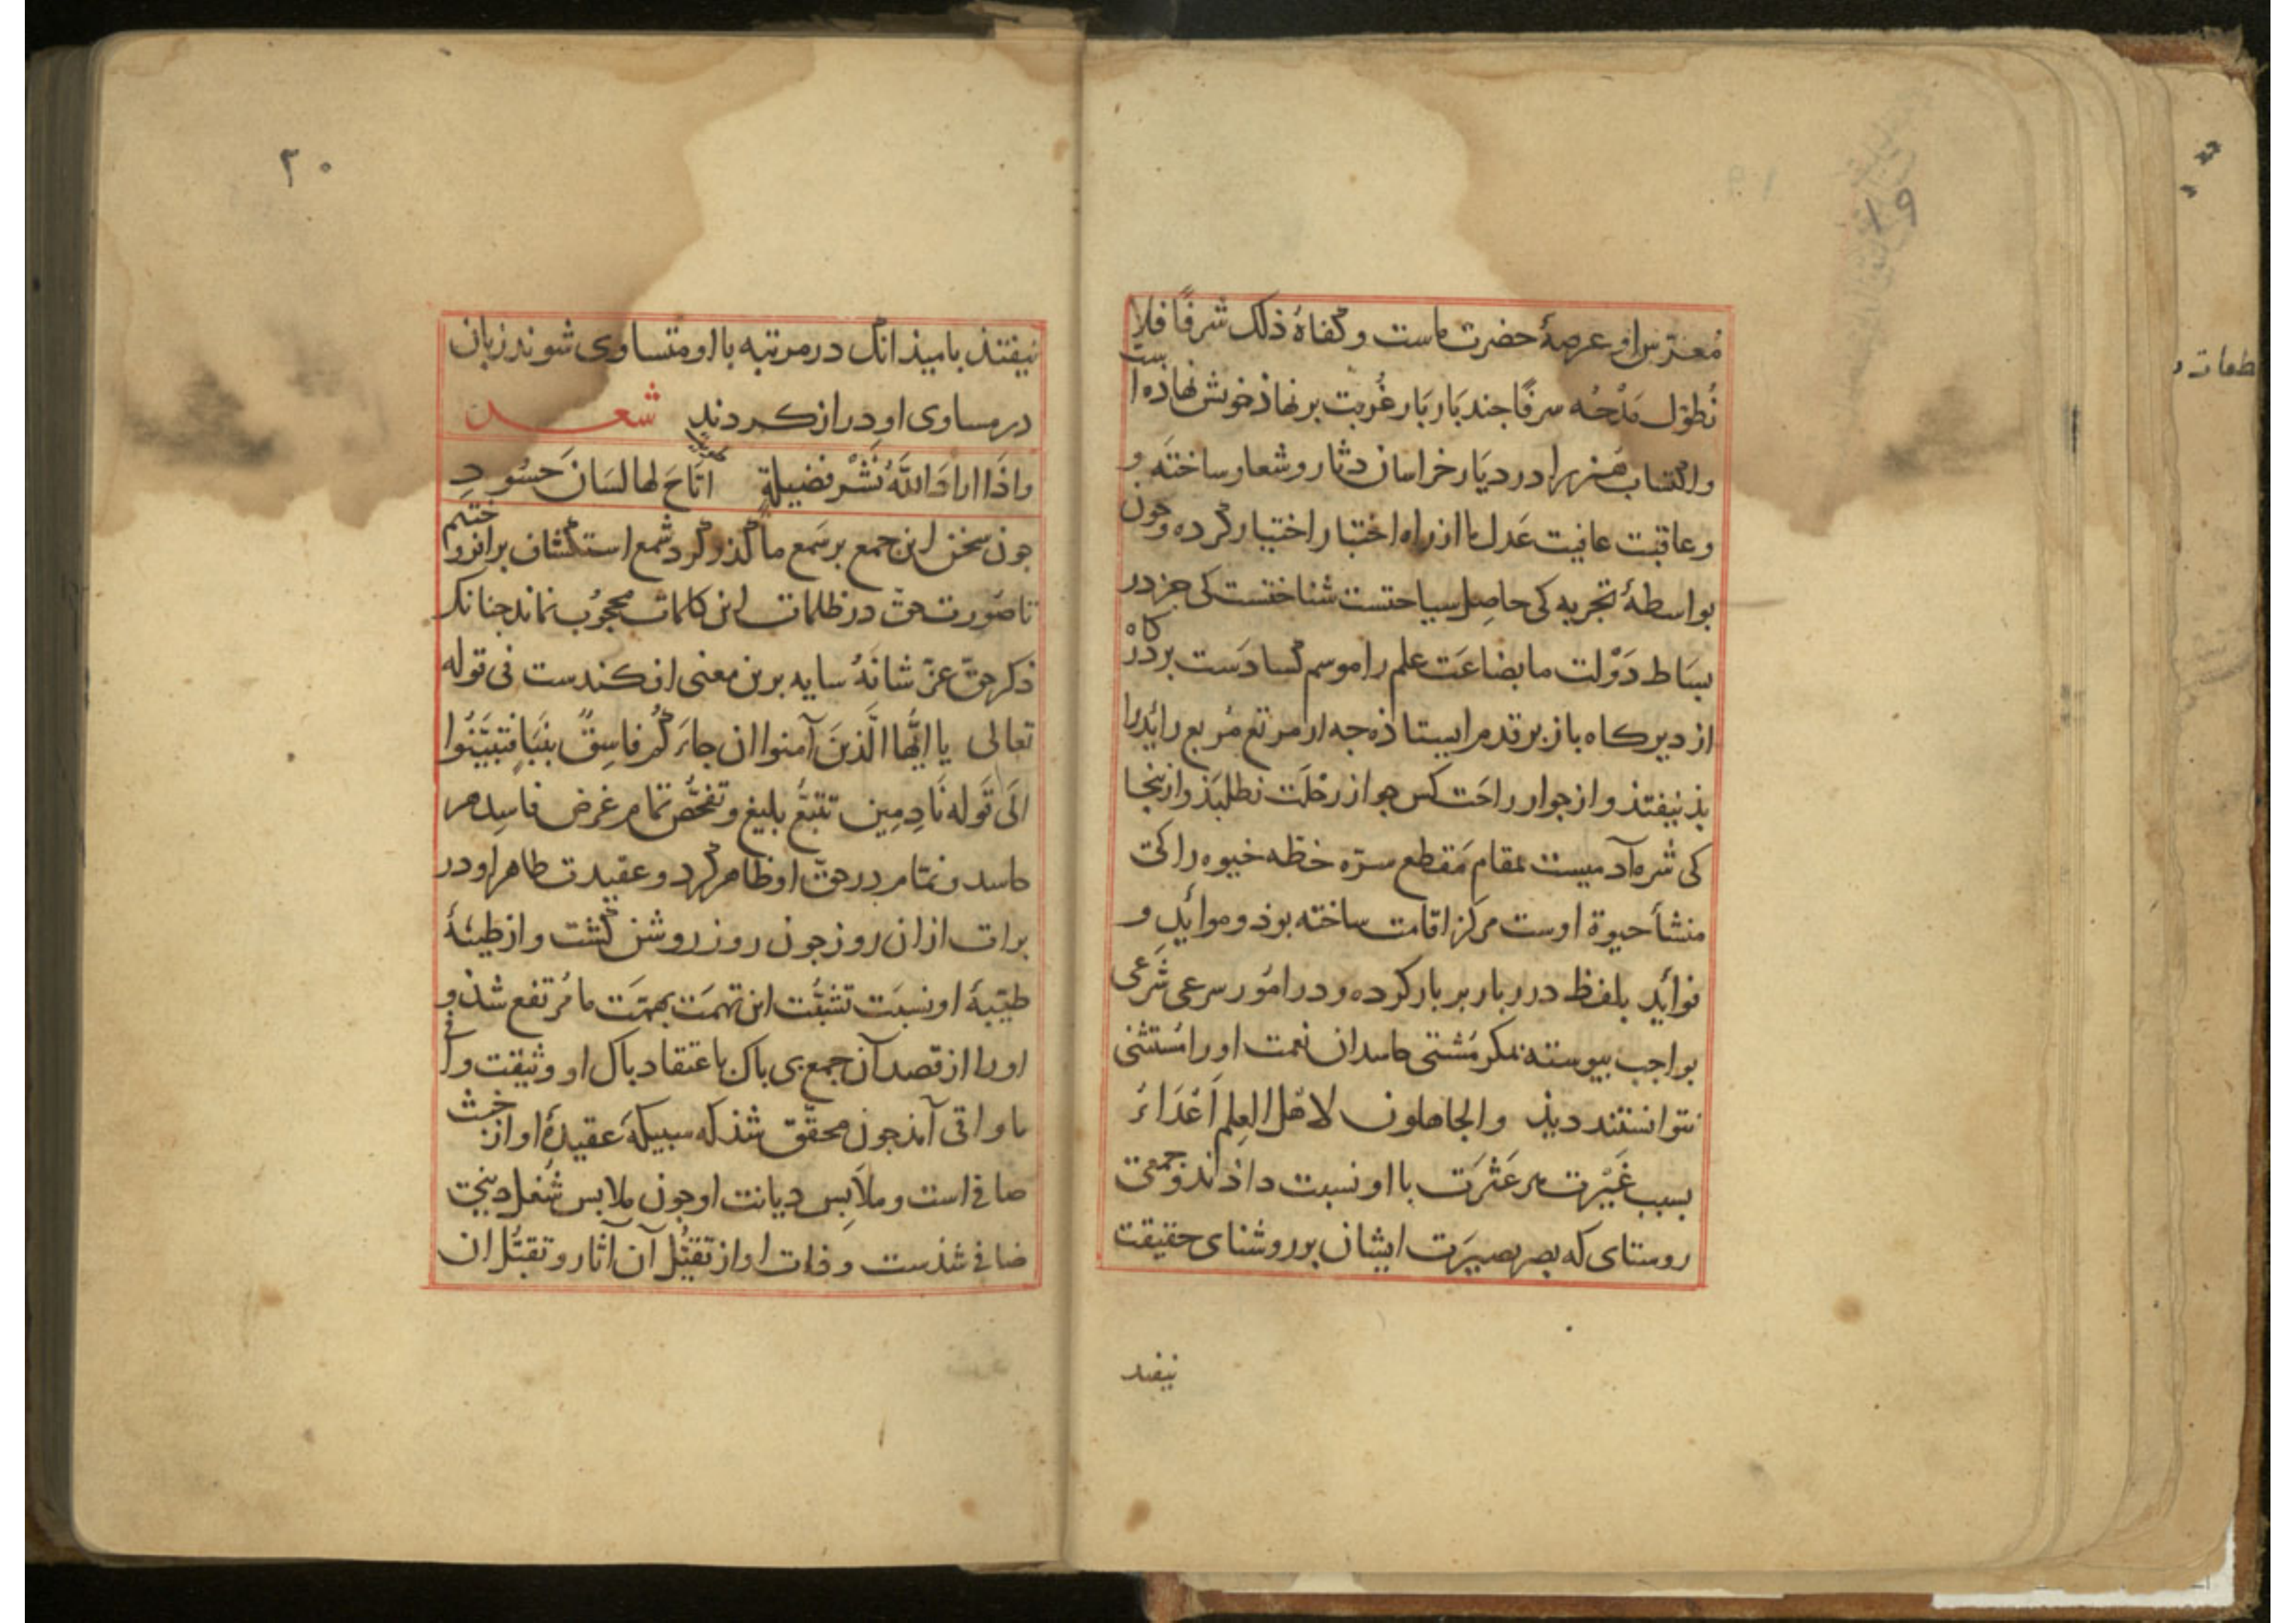 ۱۹
او عرصهٔ حضرت ماست و کفاهُ ذلک شرفًا فلا
نُطوّل مَدْحُه سرفًا جند بَار بَار غُربت بر نهاذ خوش نهاده است
واکتساب هنر را در دیَار خراسان دثار و شعار ساخته و
و عاقبت عافیت عَدل ما از راه اختبار اختیار کرده و جون
بواسطهٔ تجربه کی حاصِل سیاحتست شناختست کی جز در
بسَاط دَوْلت ما بضاعَت علم را موسم کسادَست بر درکاه
از دیرکاه باز بر قدم ایستاذه جه از مرتع مُربع رائد را
بذ نیفتذ و از جوار راحَت کس جواز رحْلَت نطلبَذ و از ینجا
کی شره آدمیست بمقام مَقطع سرّه خطّه خیوه را کی
منشأ حیوة اوست مرکز اقامت ساخته بوذ و موائد و
فوائد بلفظ درربار بر بار کرده و در امُور سرعی شَرعی
بواجب بیوسته نمکر مُشتی حاسدان نعمت او را مُستثنی
نتوانستند دیذ والجاهلون لاهل العِلم اَعْدَاءُ
بسبب غَیْرت عَثْرَت با او نسبت داذند و جمعی
روستای که بصر بصیرَت ایشان بر روشنای حقیقت
نیفتد
۲۰
نیفتذ بامیذ انک در مرتبه با او متساوی شوند زبان
در مساوی او دراز کردند شعر
واذَا ارادَ اللّهُ نَشْر فضیلةٍ طویت اتاحَ لها لسَانَ حَسُودِ
جون سخن این جمع بر سَمع ما گذر کرد شمع استکشاف بر افروختیم
تا صُورت حق در ظلمات این کلمات محجُوب نماند جنانک
ذکر حق عزّ شانَهُ سایه برین معنی افکندست فی قوله
تعالی یا ایُّها الَّذینَ آمنوا ان جاءَکُم فاسِقٌ بنَبَاٍ فتبَیَّنُوا
الَی قوله نَادِمِین تتبّع بلیغ و تفحُّص تمام غرض فاسِد هر
حاسد و نمّام در حق او ظاهر کرد و عقیدت طاهر او در
برات ازان روز جون روز روشن کشت و از طینهٔ
طیّبهٔ او نسبَت تشبُّث این تهمَت بهمّت ما مُرتفع شذ و
او را از قصد آن جمع بی باک اعتقاد باک او وثیقت وافی
ما واقی آمذ جون محقّق شذ که سبیکهٔ عقیدهٔ او از خبث
صافی است و ملاَبِس دیانت او جون ملابس شُغل دینی
ضافی شذست و ذات او از تقیُّل آن آثار و تقبُّل ان